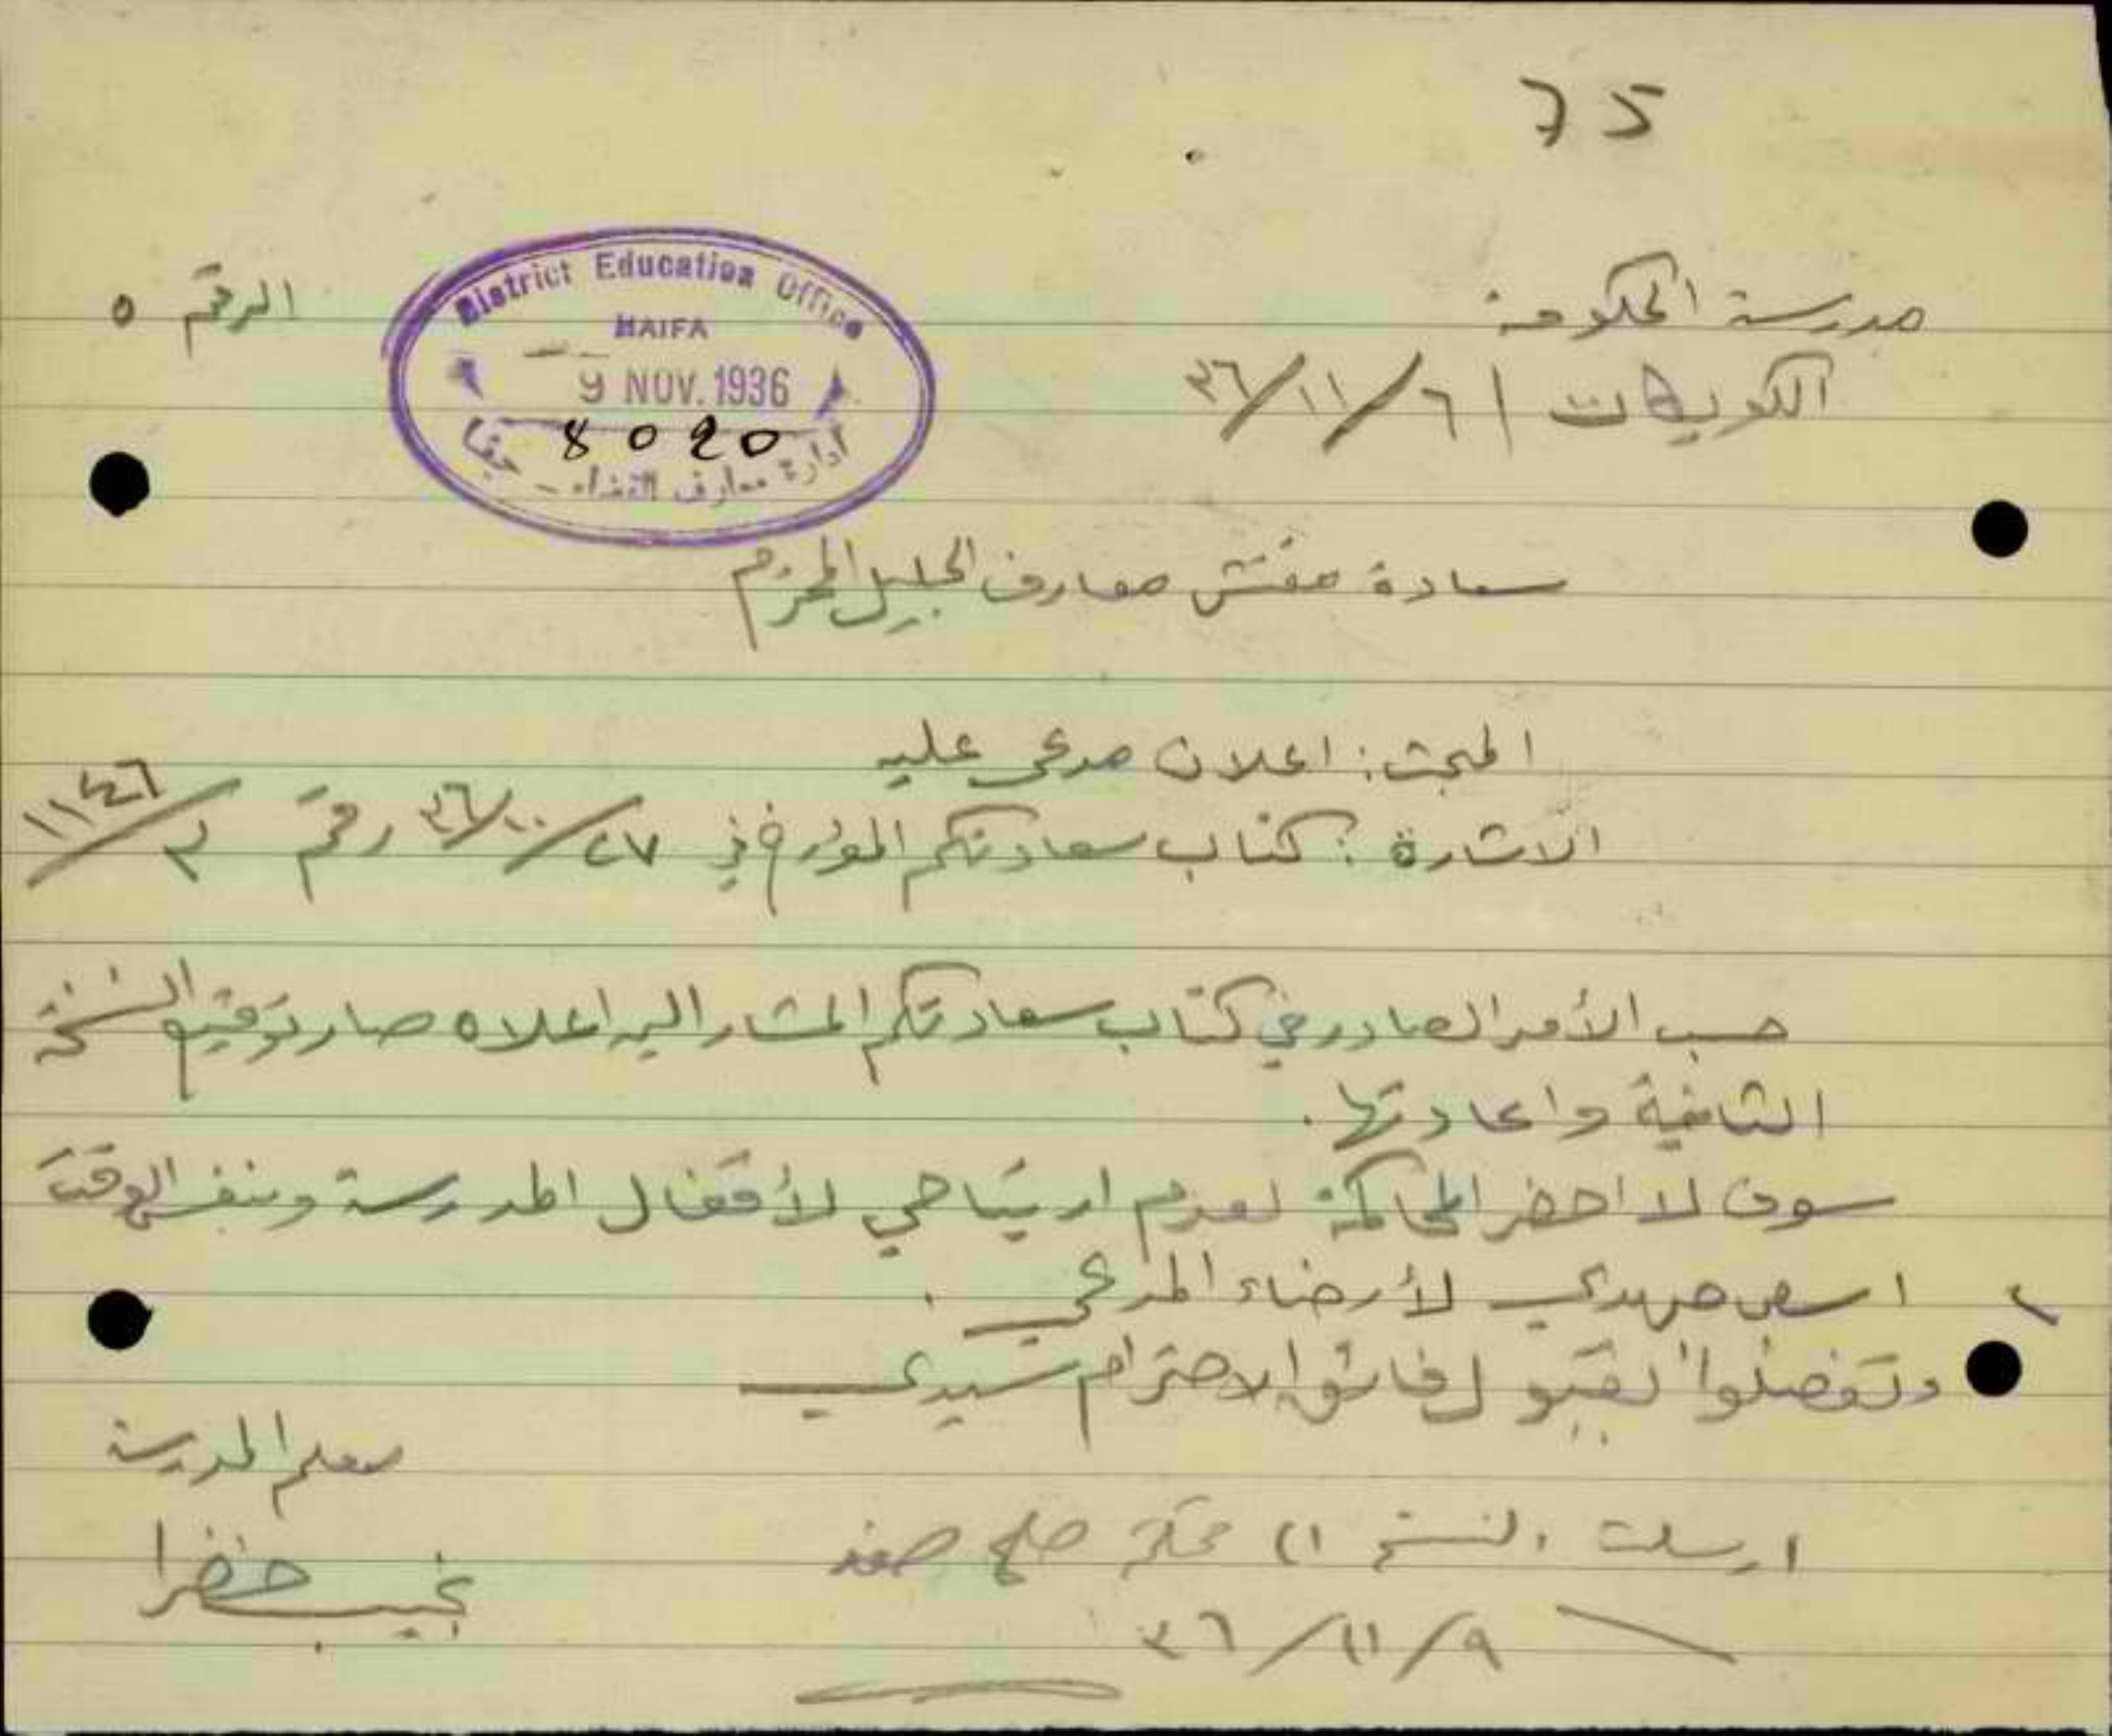 75
مدرسة الحكومة
الرقم ٥
District Education Office
HAIFA
9 NOV. 1936
8020
ادارة معارف القضاء - حيفا
٣٦/١١/٦
سعادة مفتش معارف الجليل المحترم
المبحث: اعلان مدعى عليه
الاشارة: كتاب سعادتكم المؤرخ في ٢٧/١٠/٣٦ رقم
حسب الأمر الصادر في كتاب سعادتكم المشار اليه اعلاه صار توقيع النسخة
الثانية واعادتها.
سوف لا احضر المحاكمة لعدم ارتياحي لأقفال المدرسة وبنفس الوقت
٢ اسعى جهدي لأرضاء المدعي.
وتفضلوا بقبول فائق الاحترام سيدي
معلم المدرسة
نجيب خضرا
ارسلت النسخة الى محكمة صلح صفد
٣٦/١١/٩